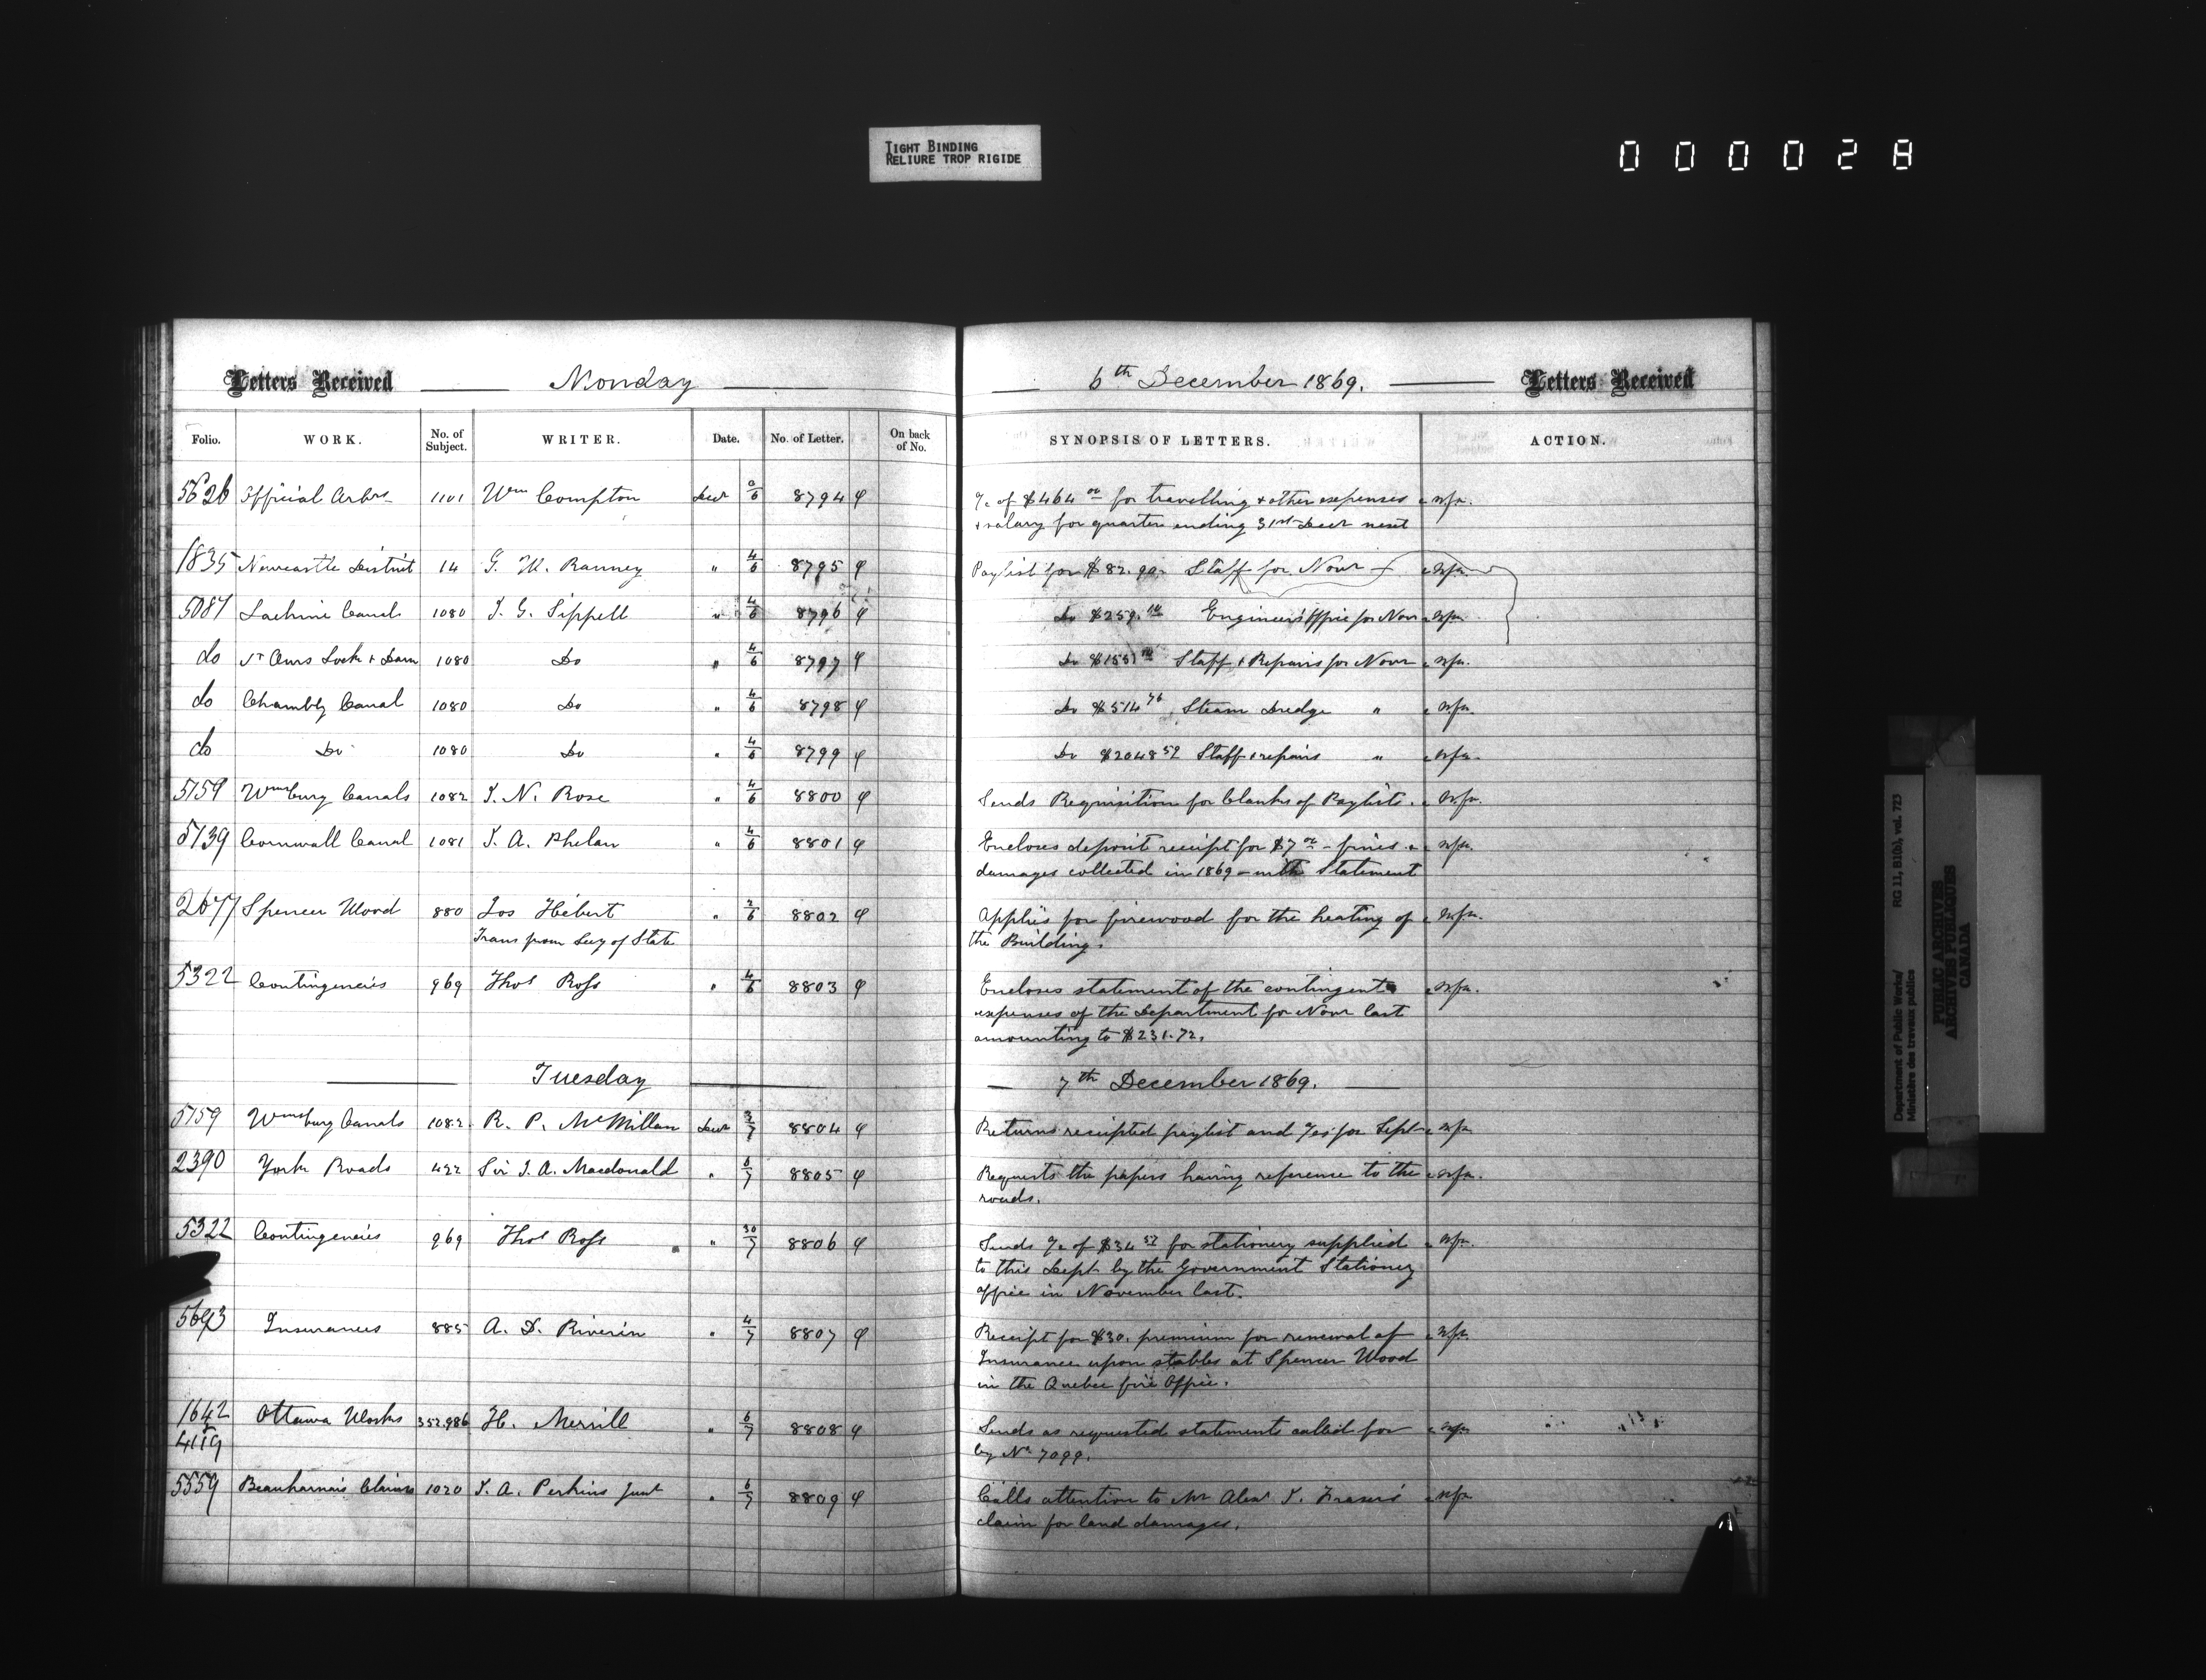 TIGHT BINDING
RELIURE TROP RIGIDE
000028
Letters Received Monday 6th December 1869. Letters Received
Folio. WORK. No. of Subject. WRITER. Date. No. of Letter. On back of No. SYNOPSIS OF LETTERS. ACTION.
5626 Official Arbrs 1101 Wm Compton Decr 6 8794 φ a/c of $464 00 for travelling & other expenses
& salary for quarter ending 31st Decr next
1835 Newcastle District 14 Ranney " 4/6 8795 φ Paylist for $82.90 Staff for Novr
5087 Lachine Canal 1080 J. G. Sippell " 4/6 8796 φ Do $259. Engineer's Office for Novr
do St Anns Lock & Dam 1080 Do " 4/6 8797 φ Do Staff & Repairs for Novr
do Chambly Canal 1080 Do " 4/6 8798 φ Do $514 76 Steam Dredge "
do Do 1080 Do " 4/6 8799 φ Do $2048 59 Staff & repairs "
5159 Wmsburg Canals 1082 J. N. Rose " 4/6 8800 φ Sends Requisition for blanks of Paylists.
5139 Cornwall Canal 1081 J. A. Phelan " 4/6 8801 φ Encloses deposit receipt for $7 00 - fines &
damages collected in 1869 - with Statement
2677 Spencer Wood 880 Jos Hebert " 2/6 8802 φ Applies for firewood for the heating of
Trans from Secy of State the Building.
5322 Contingencies 969 Thos Ross " 4/6 8803 φ Encloses statement of the contingent
expenses of the Department for Novr last
amounting to $231.72.
Tuesday 7th December 1869.
5159 Wmsburg Canals 1082 R. P. McMillan Decr 3/7 8804 φ Returns receipted paylist and a/cs for Sept
2390 York Roads 422 Sir J. A. Macdonald " 6/7 8805 φ Requests the papers having reference to the
roads.
5322 Contingencies 969 Thos Ross " 30/7 8806 φ Sends a/c of $34 57 for stationery supplied
to this Dept by the Government Stationery
office in November last.
5693 Insurances 885 A. D. Riverin " 4/7 8807 φ Receipt for $30. premium for renewal of
Insurance upon stables at Spencer Wood
in the Quebec fire Office.
1642 Ottawa Works 352.986 H. Merrill " 6/7 8808 φ Sends as requested statements called for
4119 by No 7099.
5559 Beauharnois Claims 1020 J. A. Perkins Junr " 6/7 8809 φ Calls attention to Mr Alexr J. Fraser's
claim for land damages.
Department of Public Works/ RG 11, B1(b), vol. 723
Ministère des travaux publics
PUBLIC ARCHIVES
ARCHIVES PUBLIQUES
CANADA